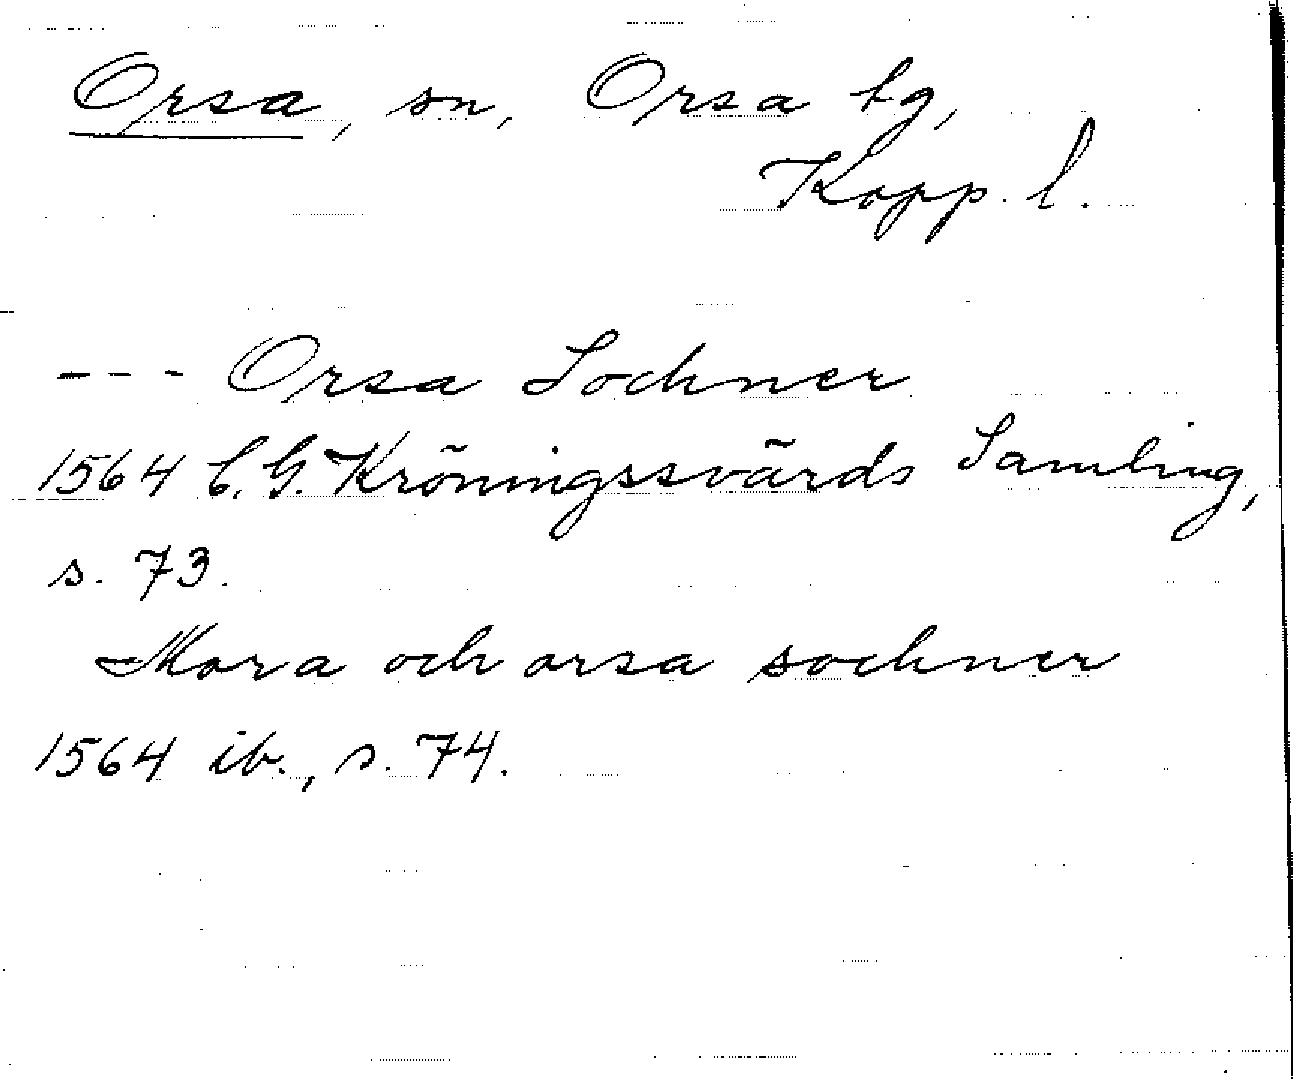 Orsa, sn, Orsa tg,
Kopp. l.
--- Orsa Sochner
1564 C. G. Kröningssvärds Samling,
s. 73.
Mora och orsa sochner
1564 ib., s. 74.